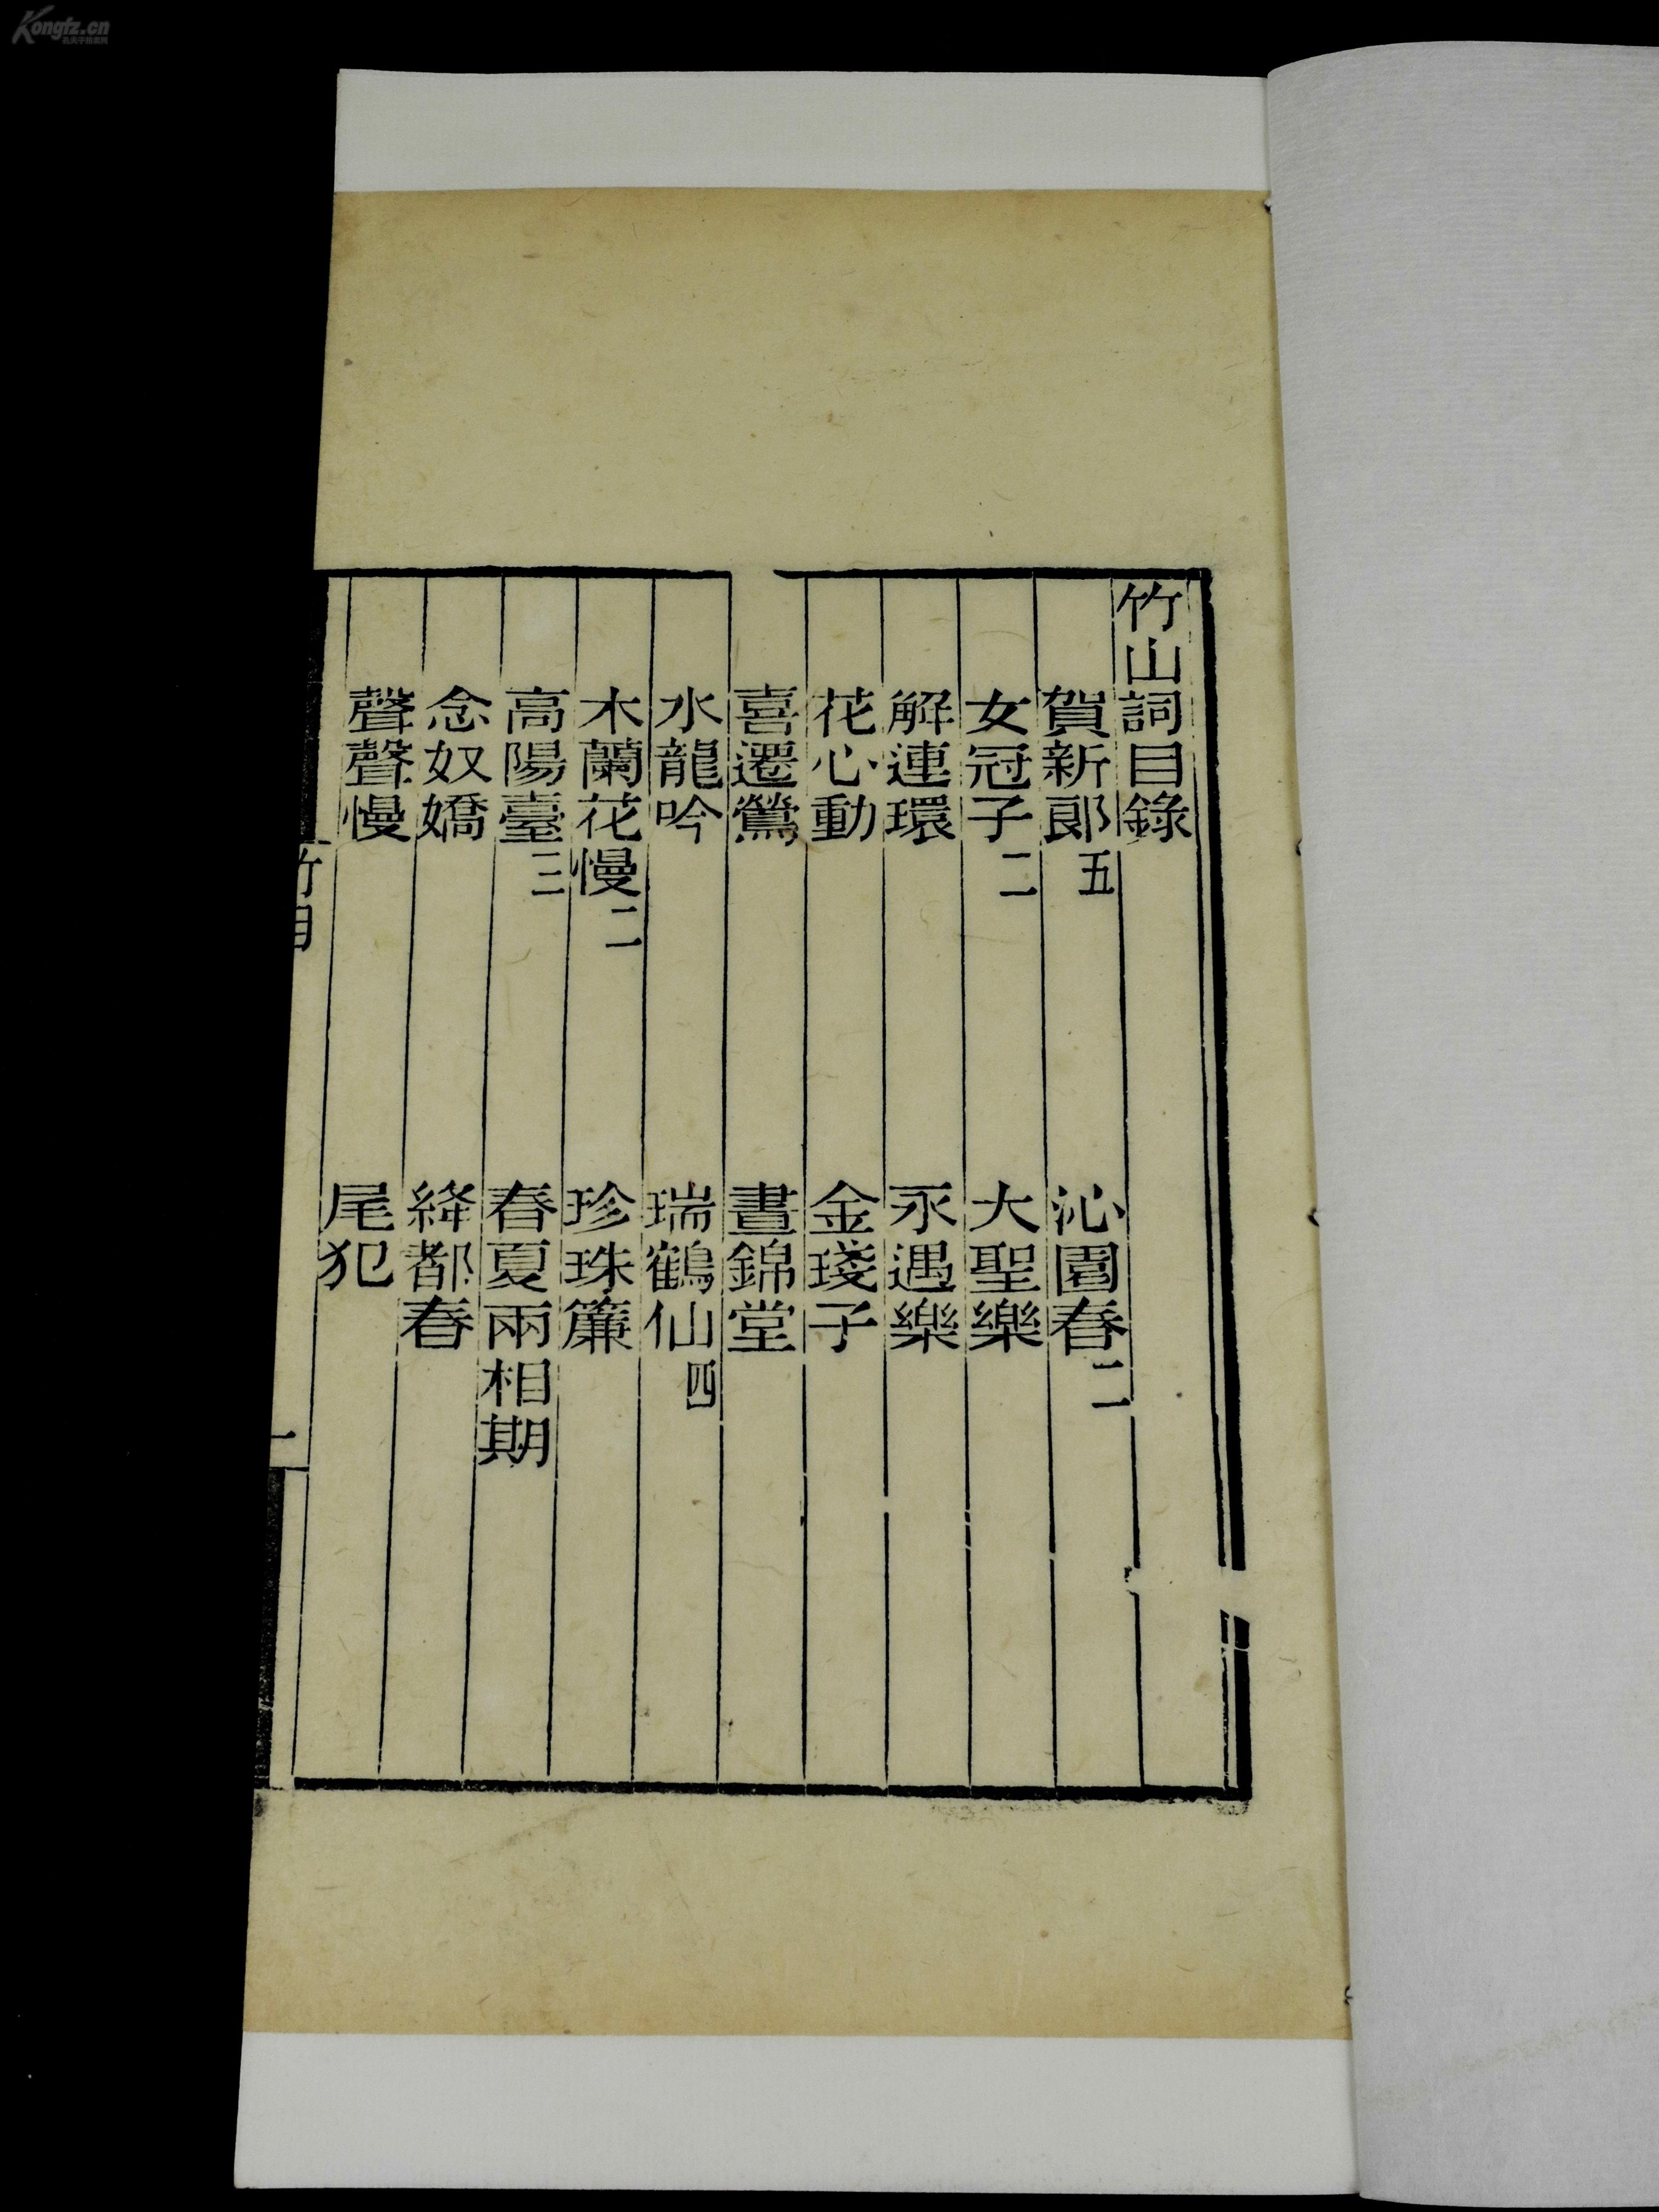 竹山詞目錄
賀新郎五 沁園春二
女冠子二 大聖樂
解連環 永遇樂
花心動 金琖子
喜遷鶯 晝錦堂
水龍吟 瑞鶴仙四
木蘭花慢二 珍珠簾
高陽臺三 春夏兩相期
念奴嬌 絳都春
聲聲慢 尾犯
竹目
一
Kongfz.cn